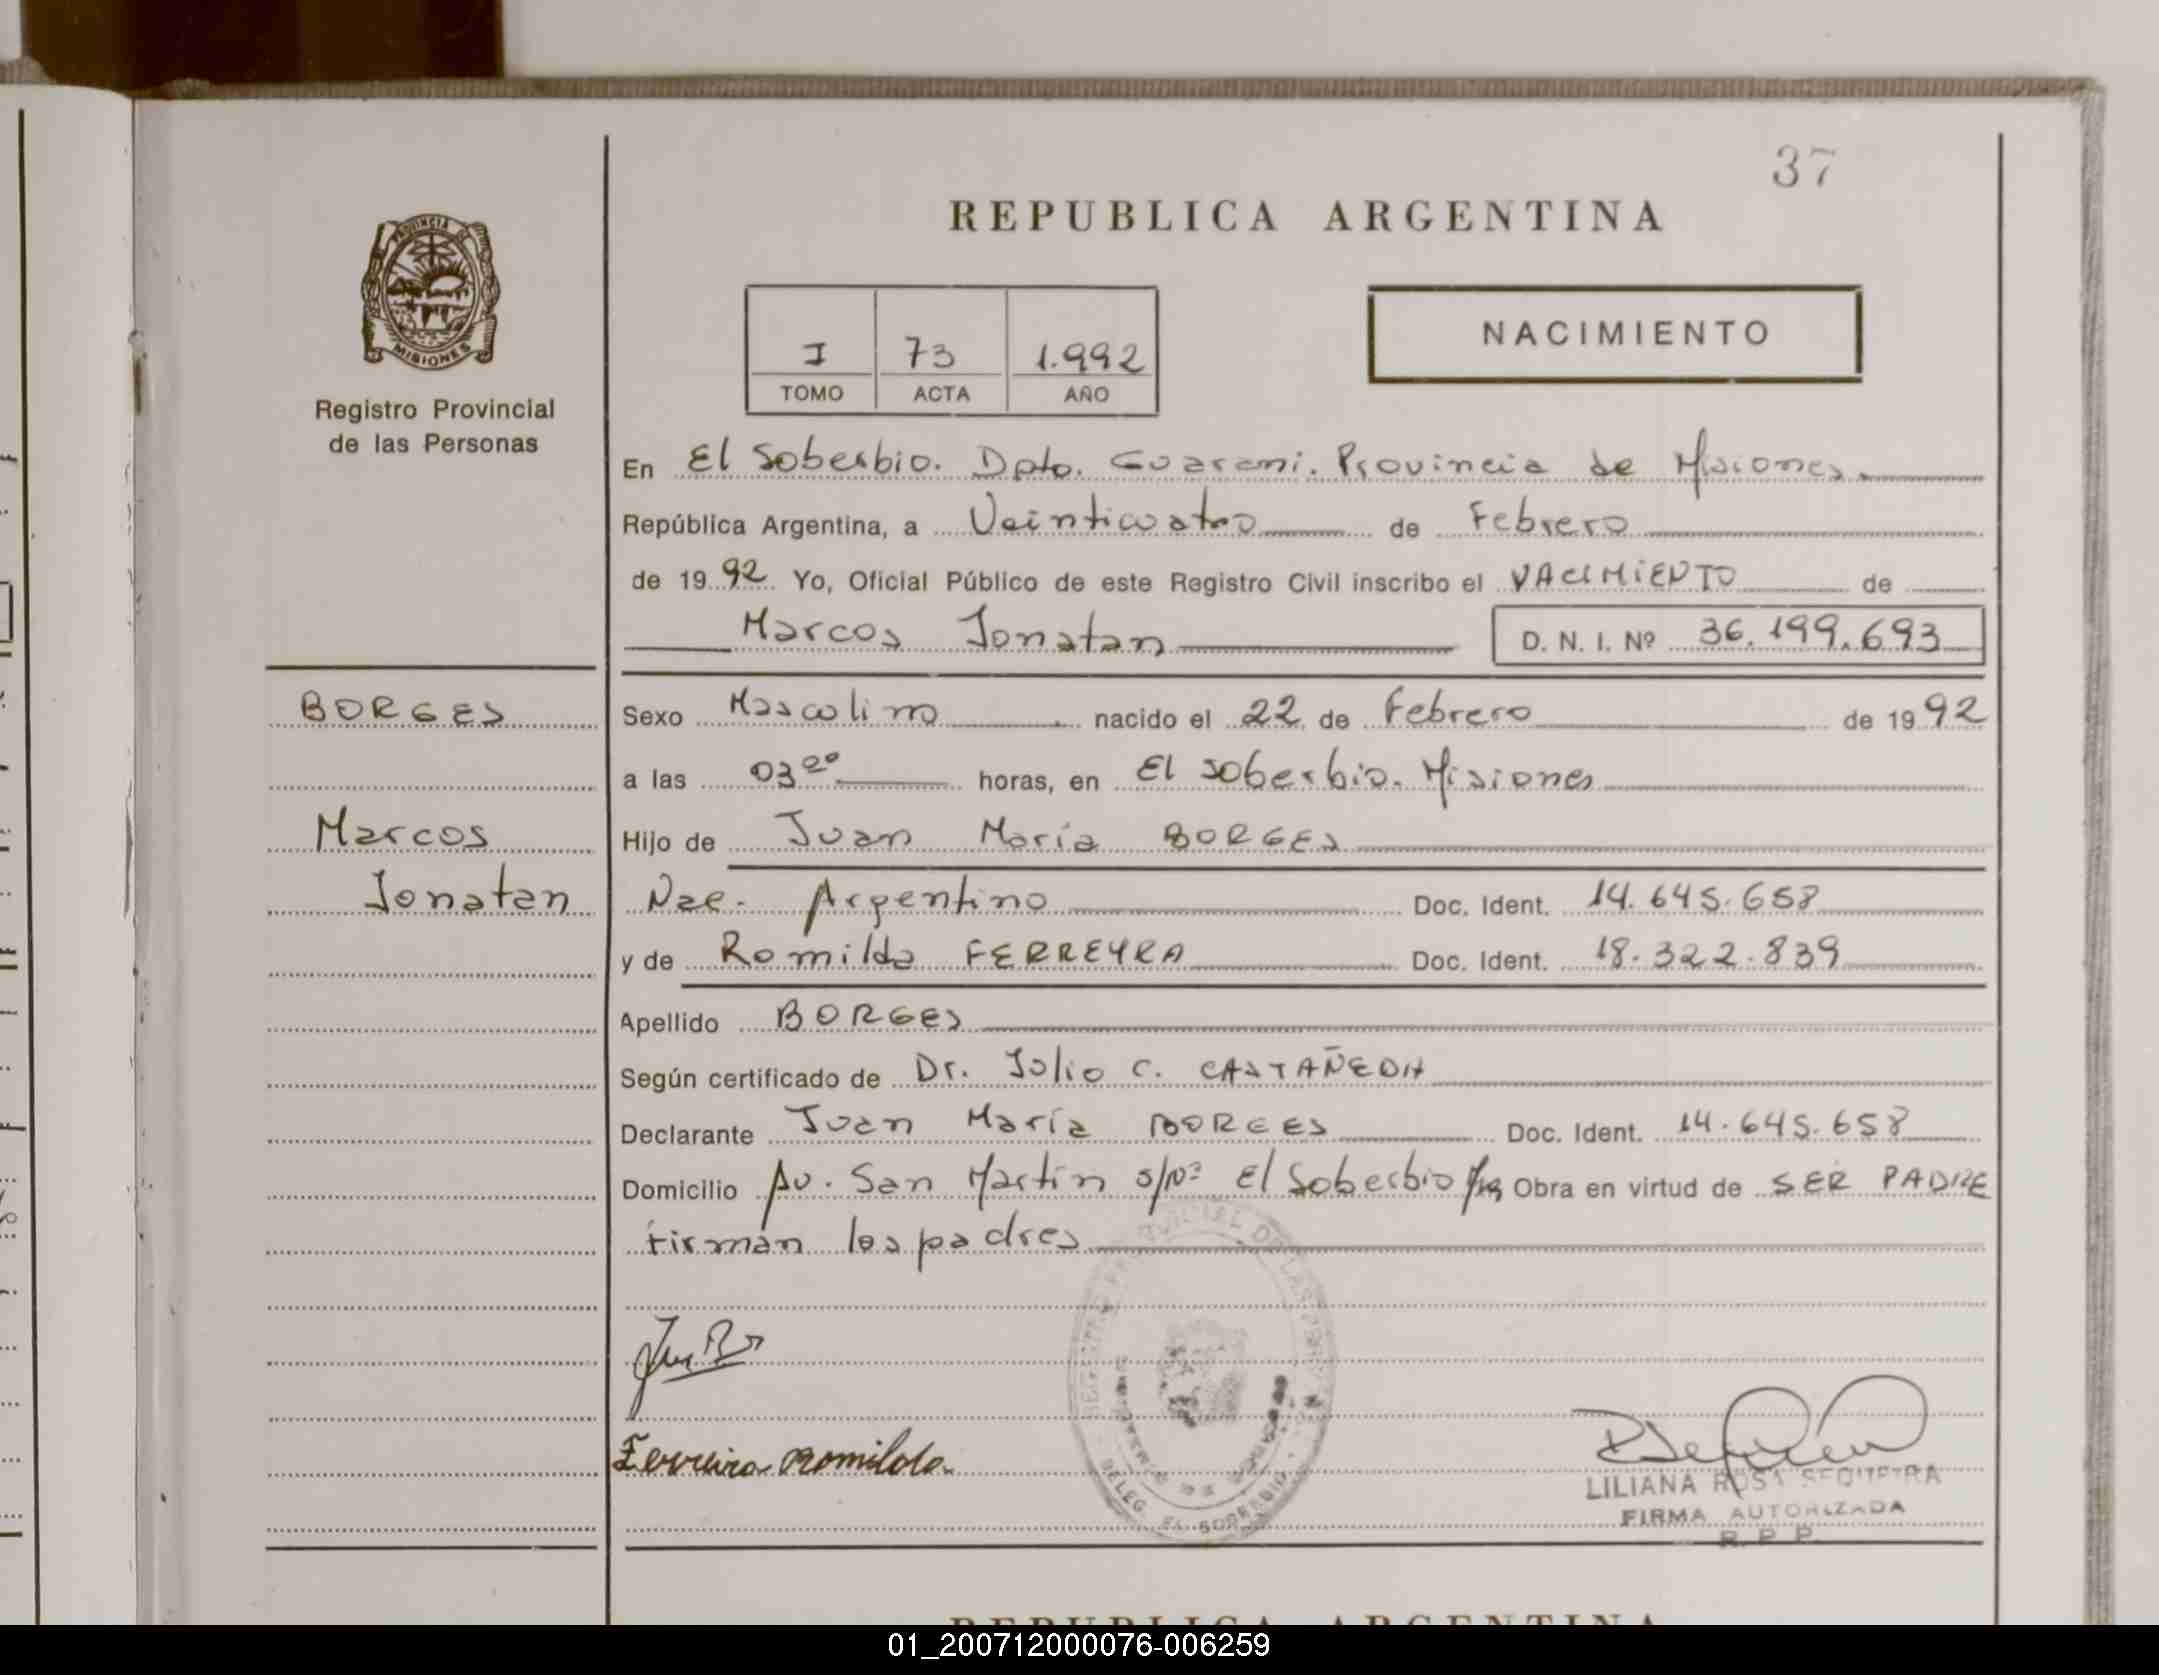 37
REPUBLICA ARGENTINA
PROVINCIA DE
MISIONES
Registro Provincial
de las Personas
I 73 1.992
TOMO ACTA AÑO
NACIMIENTO
En El Soberbio. Dpto. Guarani. Provincia de Misiones.
República Argentina, a Veinticuatro de Febrero
de 1992 Yo, Oficial Público de este Registro Civil inscribo el NACIMIENTO de
Marcos Jonatan D. N. I. Nº 36.199.693
BORGES
Marcos
Jonatan
Sexo Masculino nacido el 22 de Febrero de 1992
a las 03 20 horas, en El Soberbio. Misiones
Hijo de Juan María BORGES
Nac. Argentino Doc. Ident. 14.645.658
y de Romilda FERREYRA Doc. Ident. 18.322.839
Apellido BORGES
Según certificado de Dr. Julio C. CASTAÑEDA
Declarante Juan María BORGES Doc. Ident. 14.645.658
Domicilio Av. San Martín s/Nº El Soberbio Mnes Obra en virtud de SER PADRE
Firman los padres
Ferreira Romilda
DELEG. EL SOBERBIO
LILIANA ROSA SEQUEIRA
FIRMA AUTORIZADA
R. P. P.
REPUBLICA ARGENTINA
01_200712000076-006259